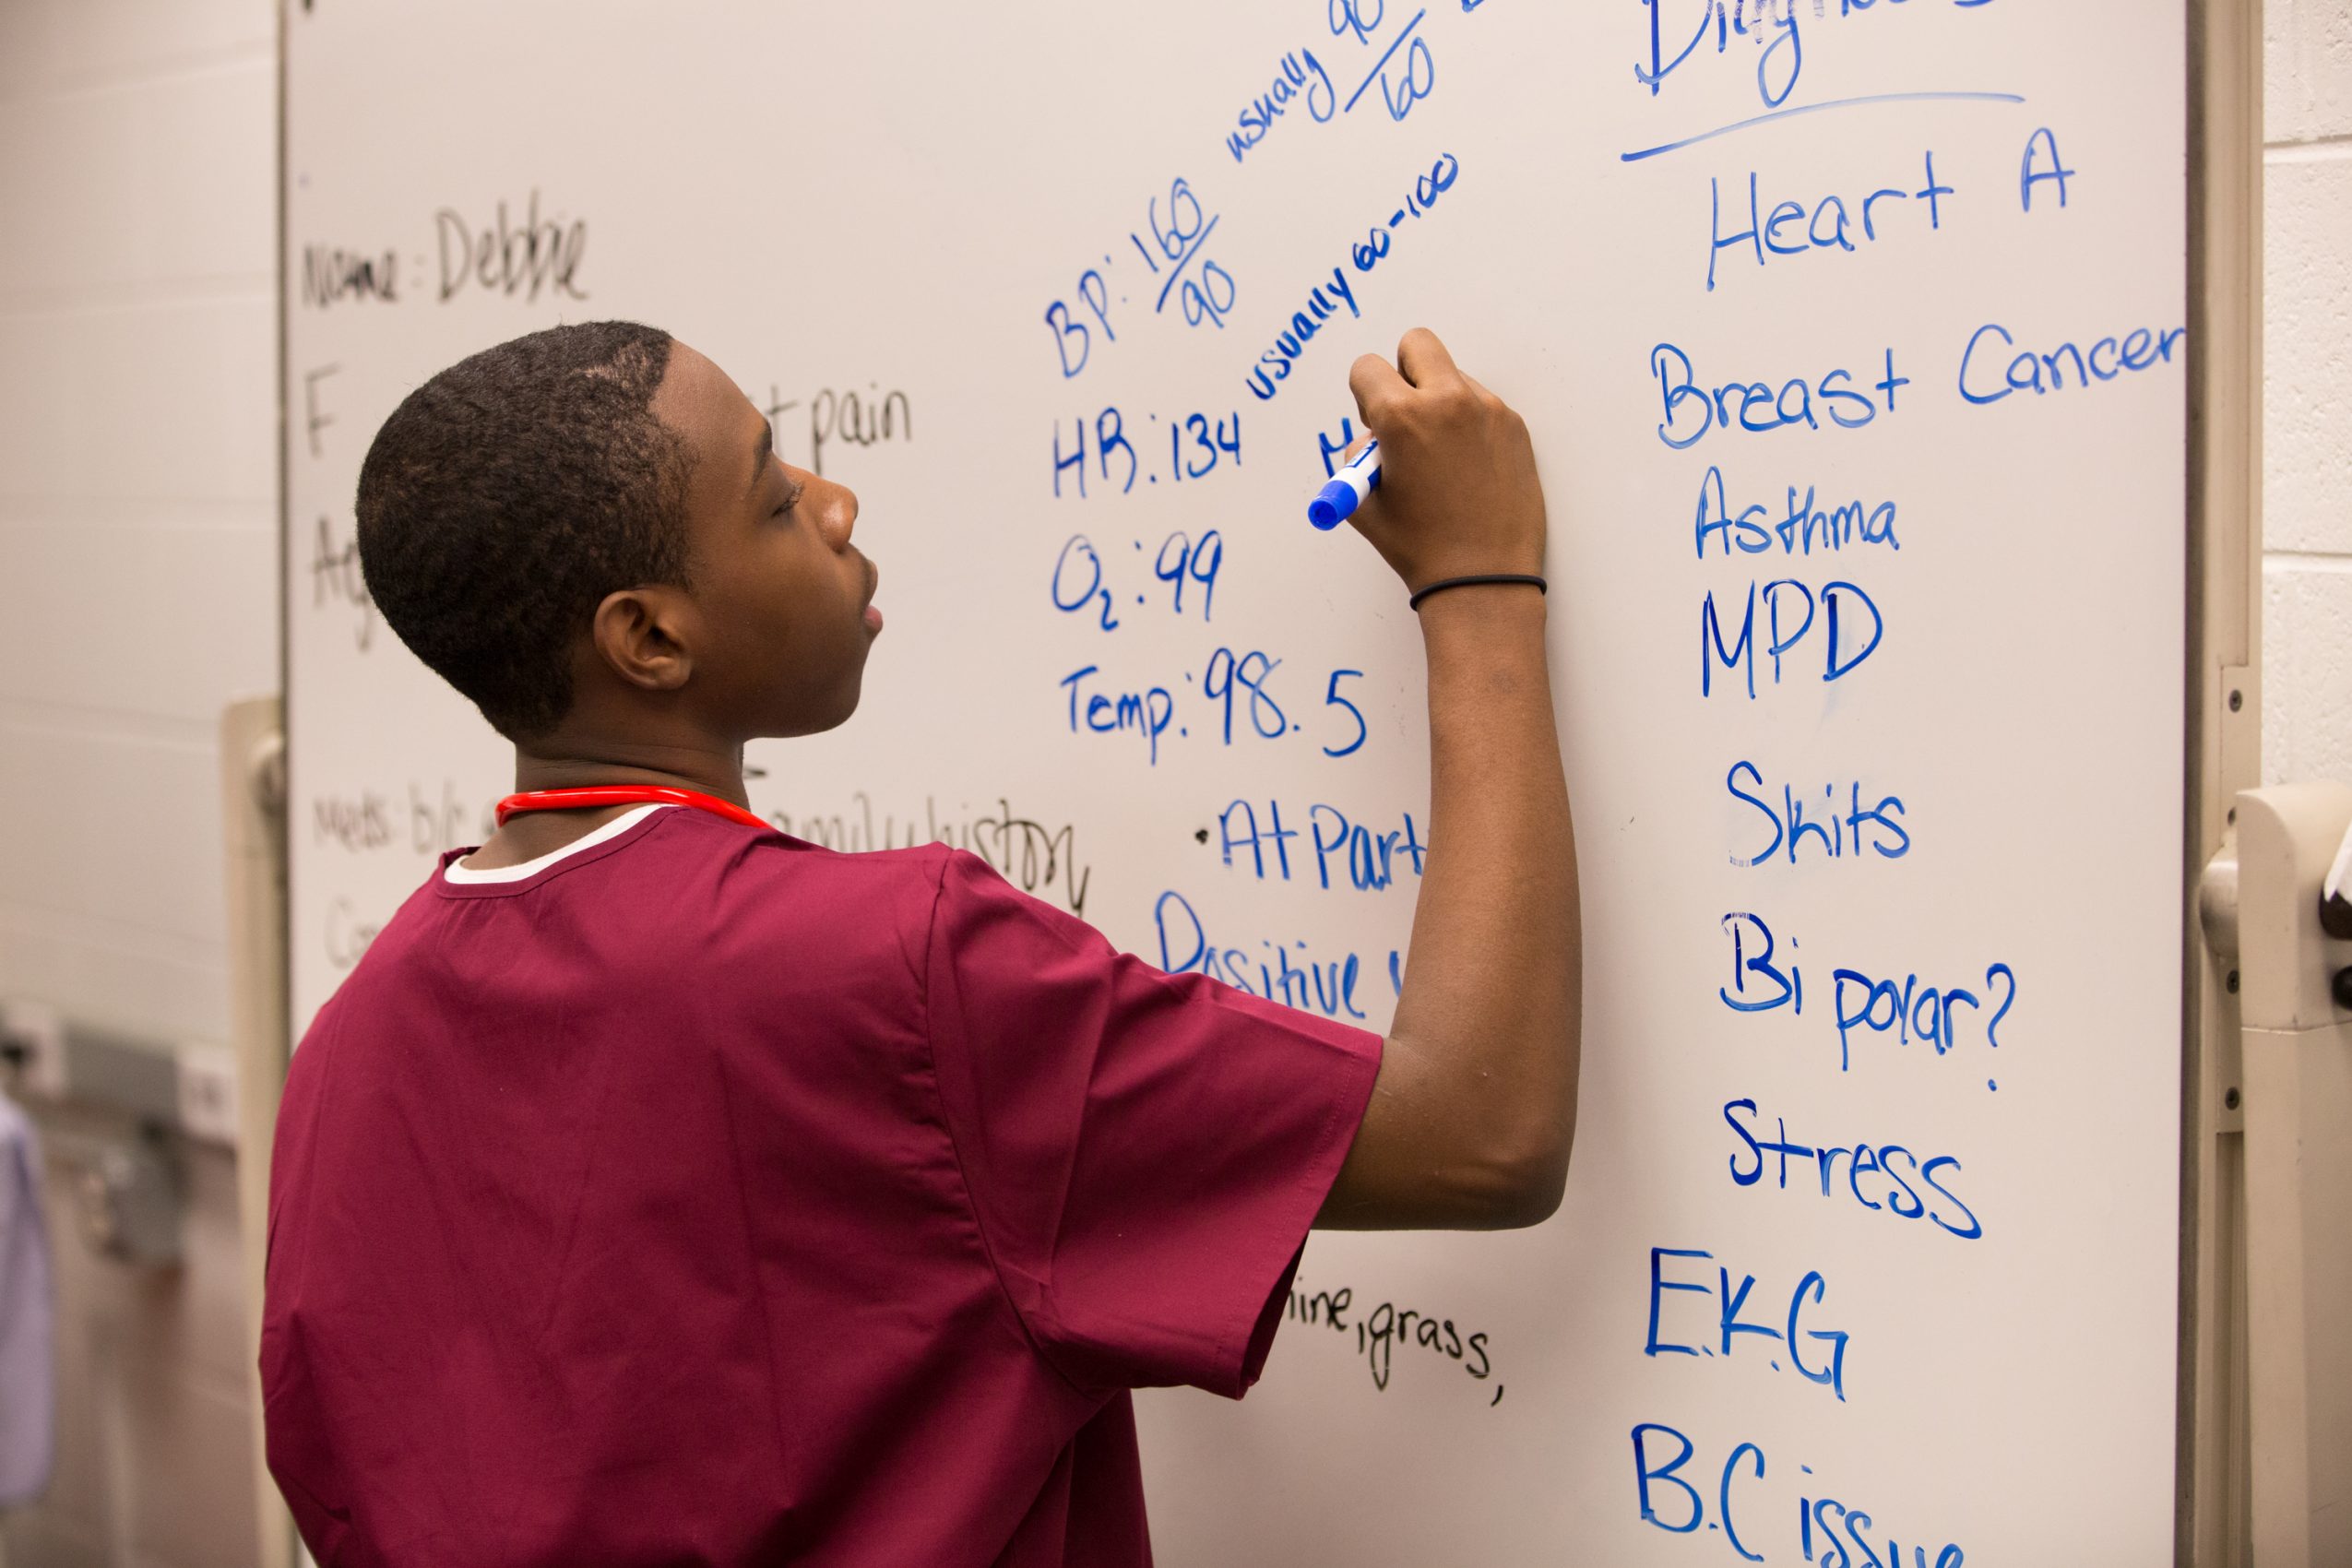 Name: Debbie
F
pain
Meds: b/c
family history
usually 90/60
BP: 160/90
usually 60-100
HR: 134
O2: 99
Temp: 98.5
• At Part
Positive
grass,
Heart A
Breast Cancer
Asthma
MPD
Skits
Bi polar?
Stress
E.K.G
B.C issue